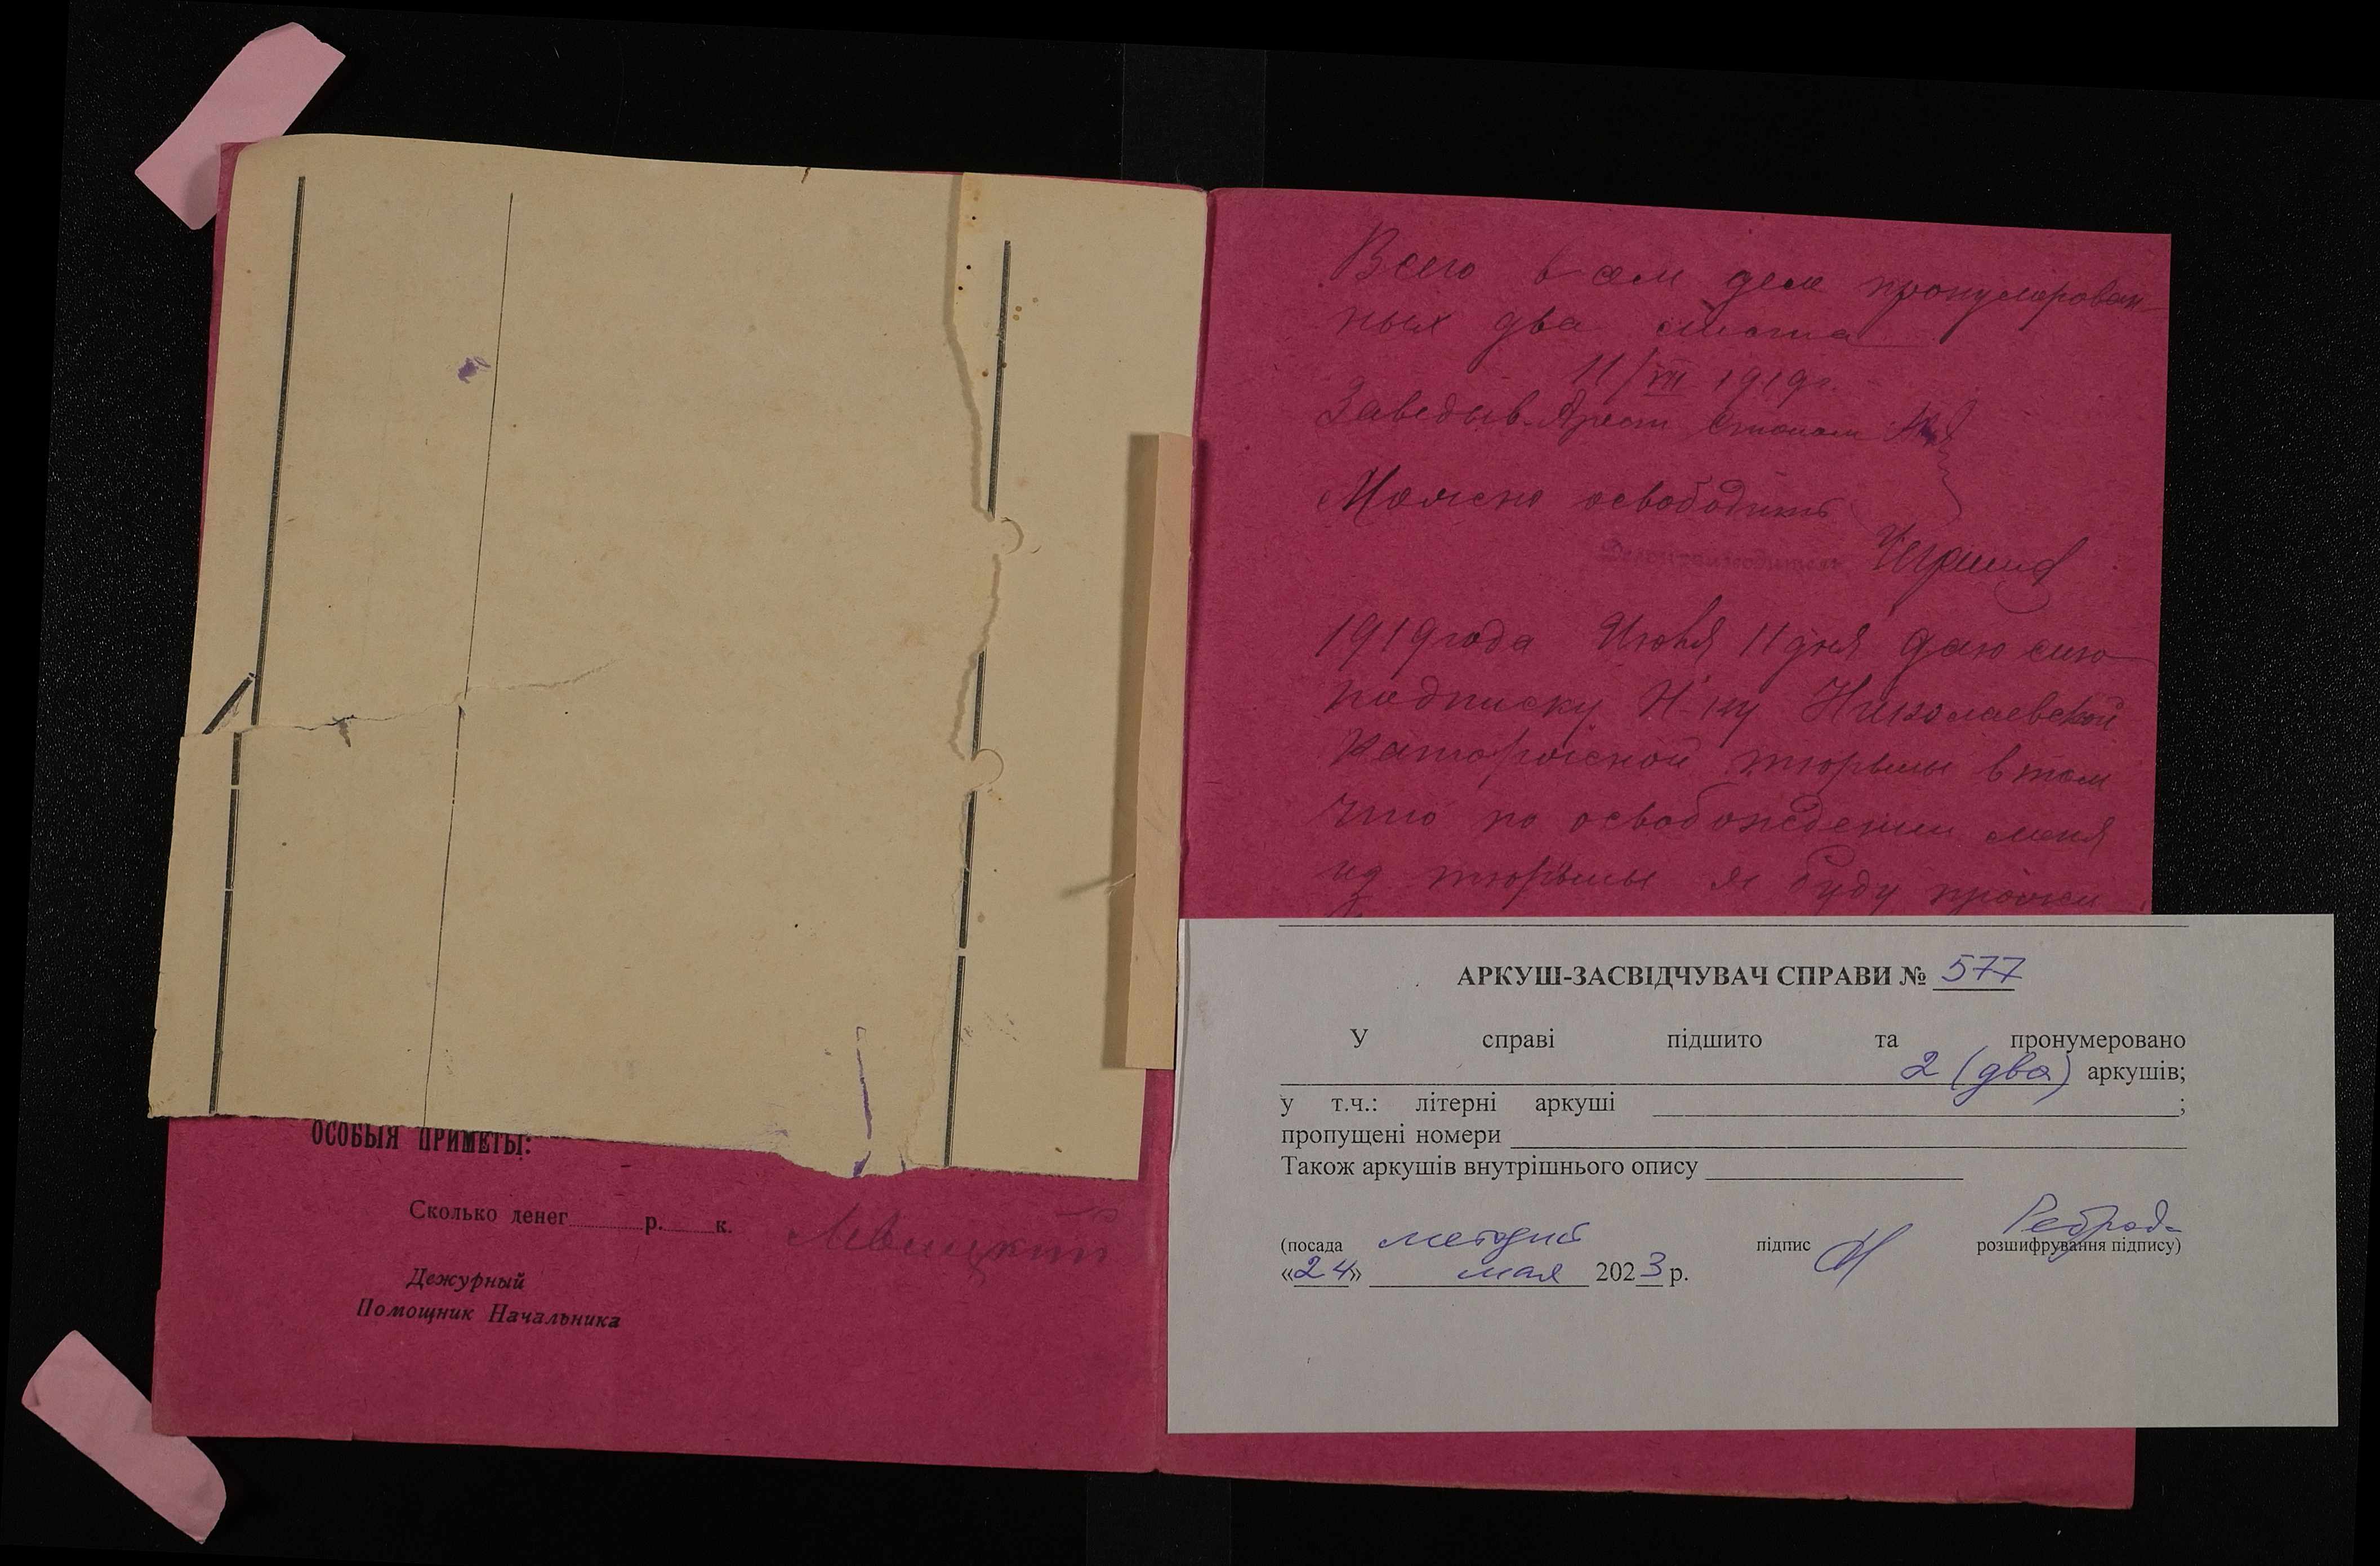 ОСОБЫЯ ПРИМЕТЫ:
Сколько денег р. к.
Левицкий
Дежурный
Помощник Начальника
Всего в сем деле пронумерован-
ных два листа
11/VII 1919г.
Заведыв. Арест столом
Можно освободить
Делопроизводитель
1919 года Июля 11 дня даю сию
подписку Н-ку Николаевской
каторжной тюрьмы в том
что по освобождении меня
из тюрьмы я буду прожи-
АРКУШ-ЗАСВІДЧУВАЧ СПРАВИ № 577
У справі підшито та пронумеровано
2 (два) аркушів;
у т.ч.: літерні аркуші ;
пропущені номери
Також аркушів внутрішнього опису
(посада підпис розшифрування підпису)
«24» мая 2023 р.